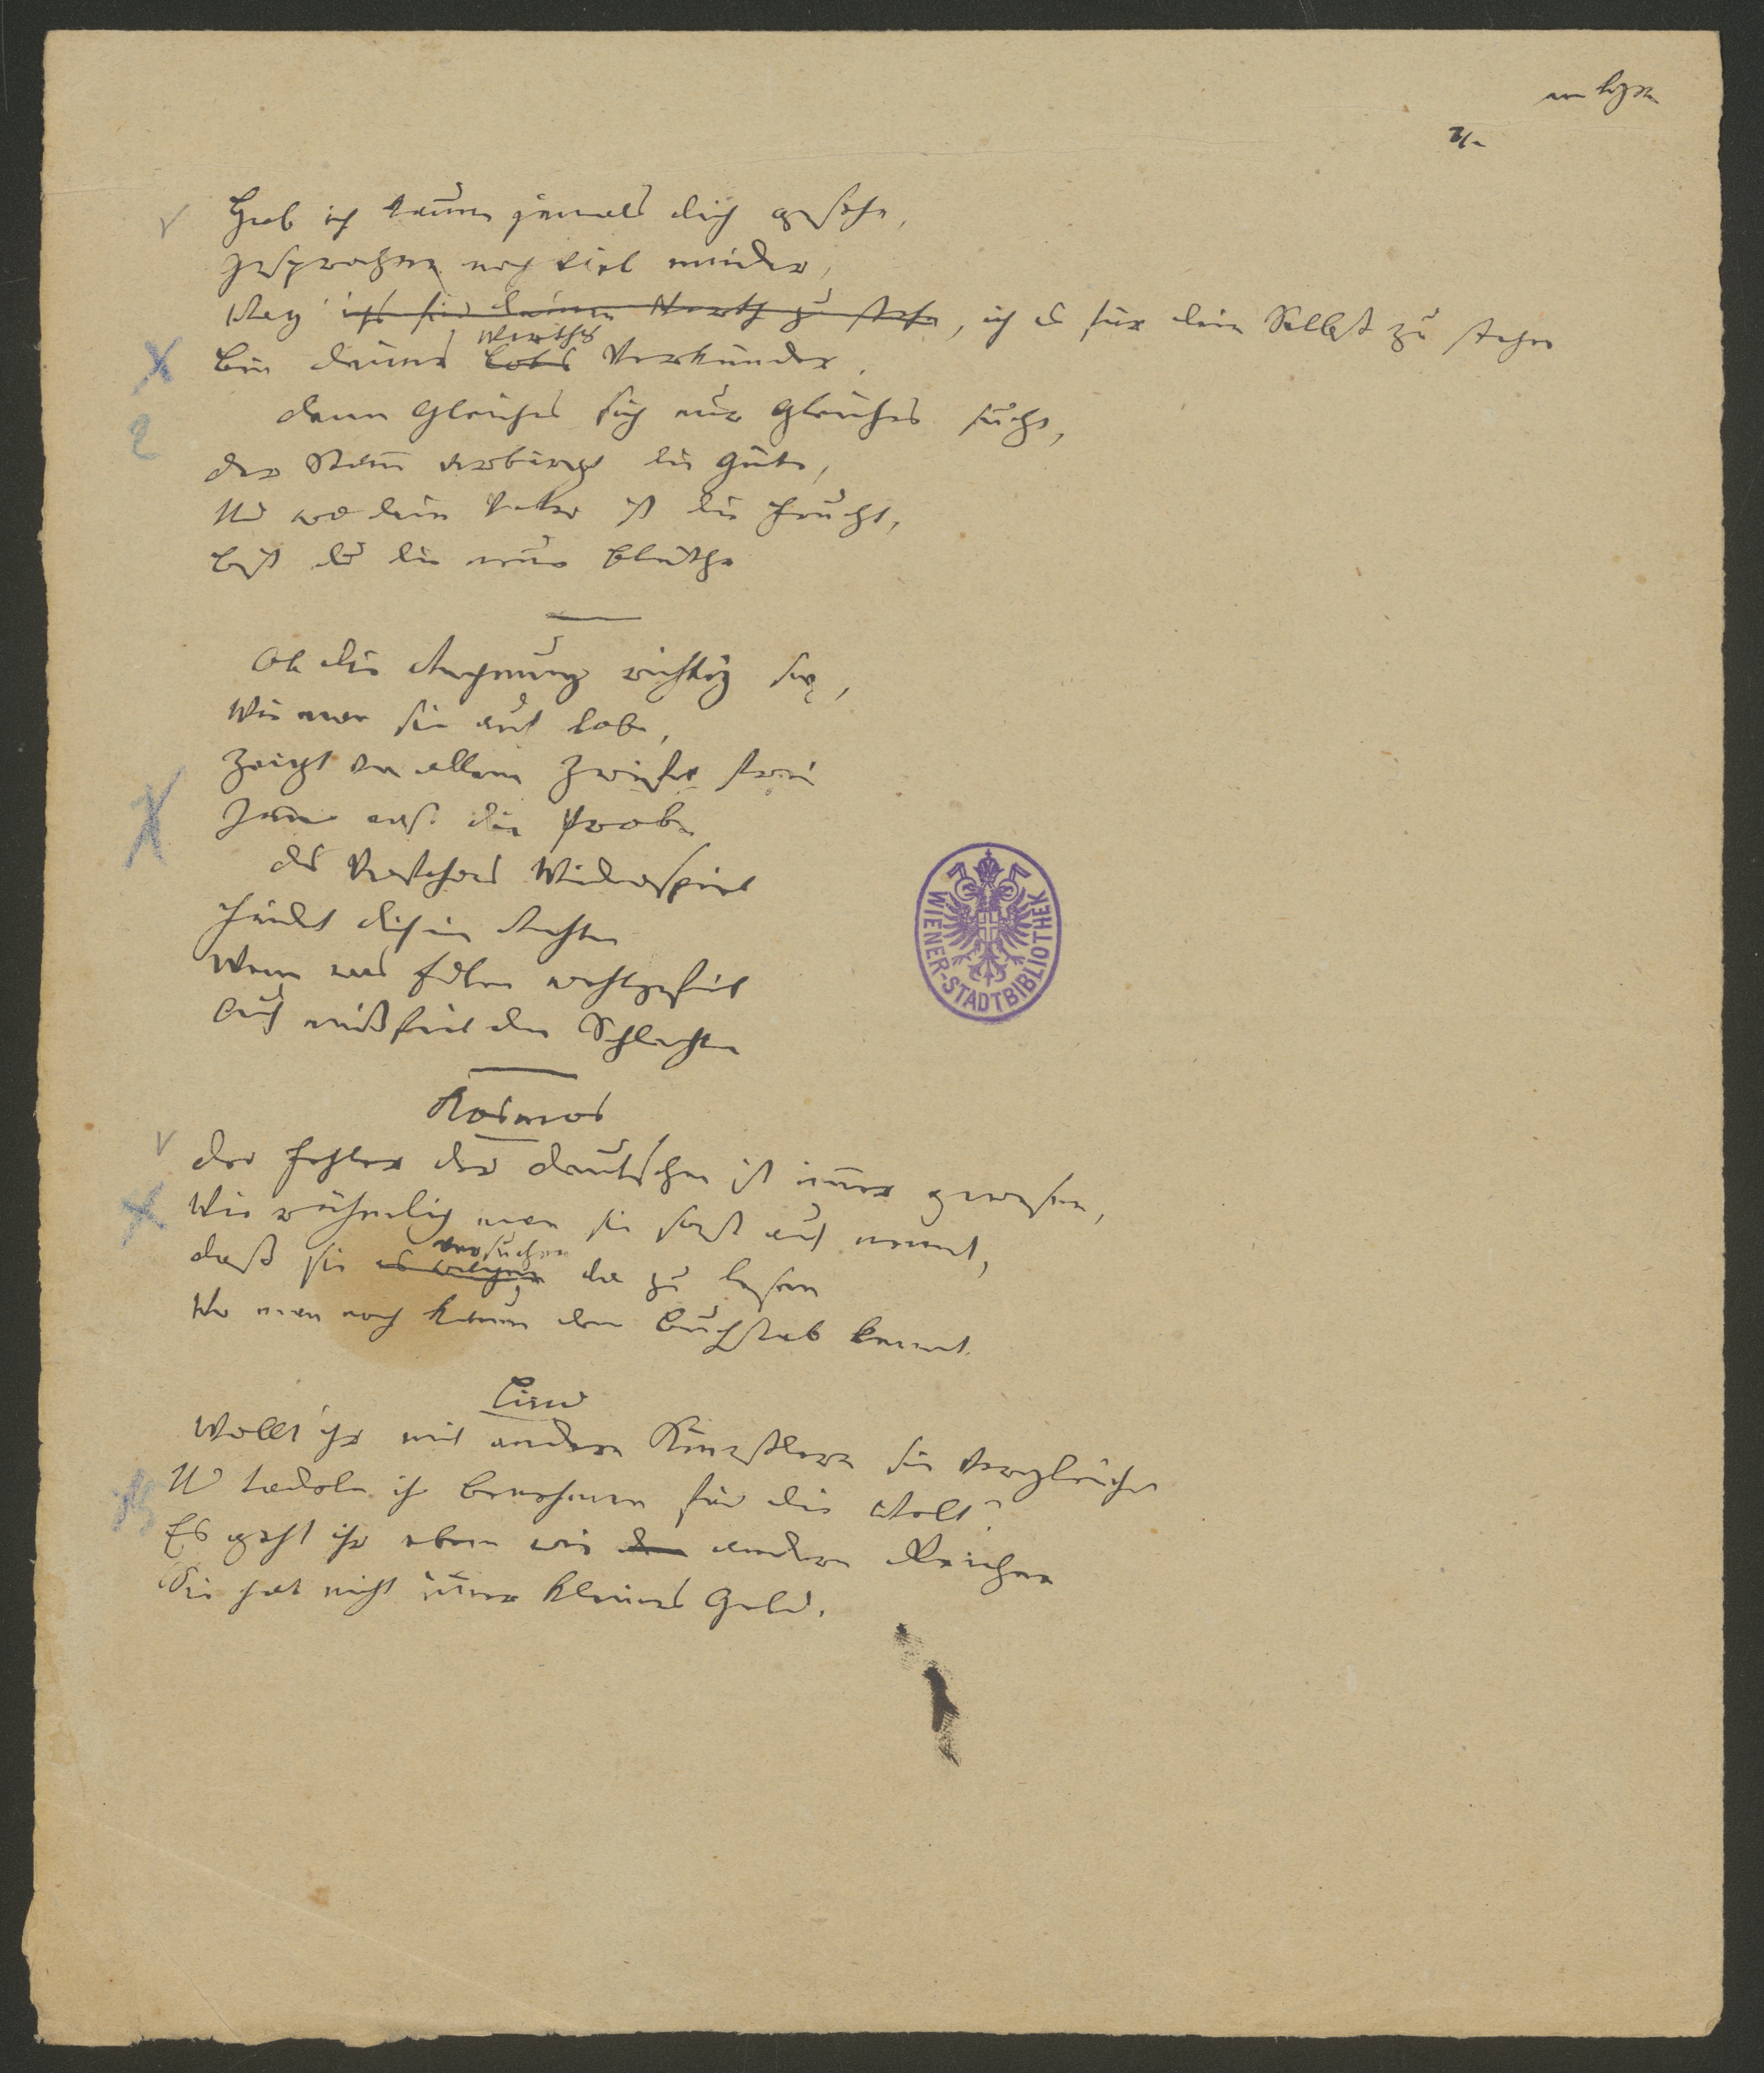 Hab ich kaum jemals dich gesehn,
Gesprochen noch viel minder,
Mag ichs für deinen Werth zu stehn, ich d für dein Selbst zu stehn
Werthes
Bin deines Lobes Verkünder.
Denn Gleiches sich nur Gleiches sucht,
Der Stam̄ verbürgt die Güte,
Und wo dein Vater ist die Frucht,
Bist du die neue Blüthe
Ob die Rechnung richtig sey,
Wie man sie auch lobe,
Zeigt von allem Zweifel frei
Immer erst die Probe
Des Verstehens Widerspiel
Findet dich im Rechten
Wenn was Edlen wohlgefiel
Auch mißfiel den Schlechten
Kosmos
Der Fehler der Deutschen ist im̄er gewesen,
Wie rühmlich man sie sonst auch nennt,
versuchen
Daß sie es wagen da zu lesen
Wo man noch kaum den Buchstab kennt.
Lind
Wollt ihr mit andern Künstlern sie vergleichen
U tadeln ihr Benehmen für die Welt?
Es geht ihr eben wie den andern Reichen
Sie hat nicht im̄er kleines Geld.
WIENER-STADTBIBLIOTHEK